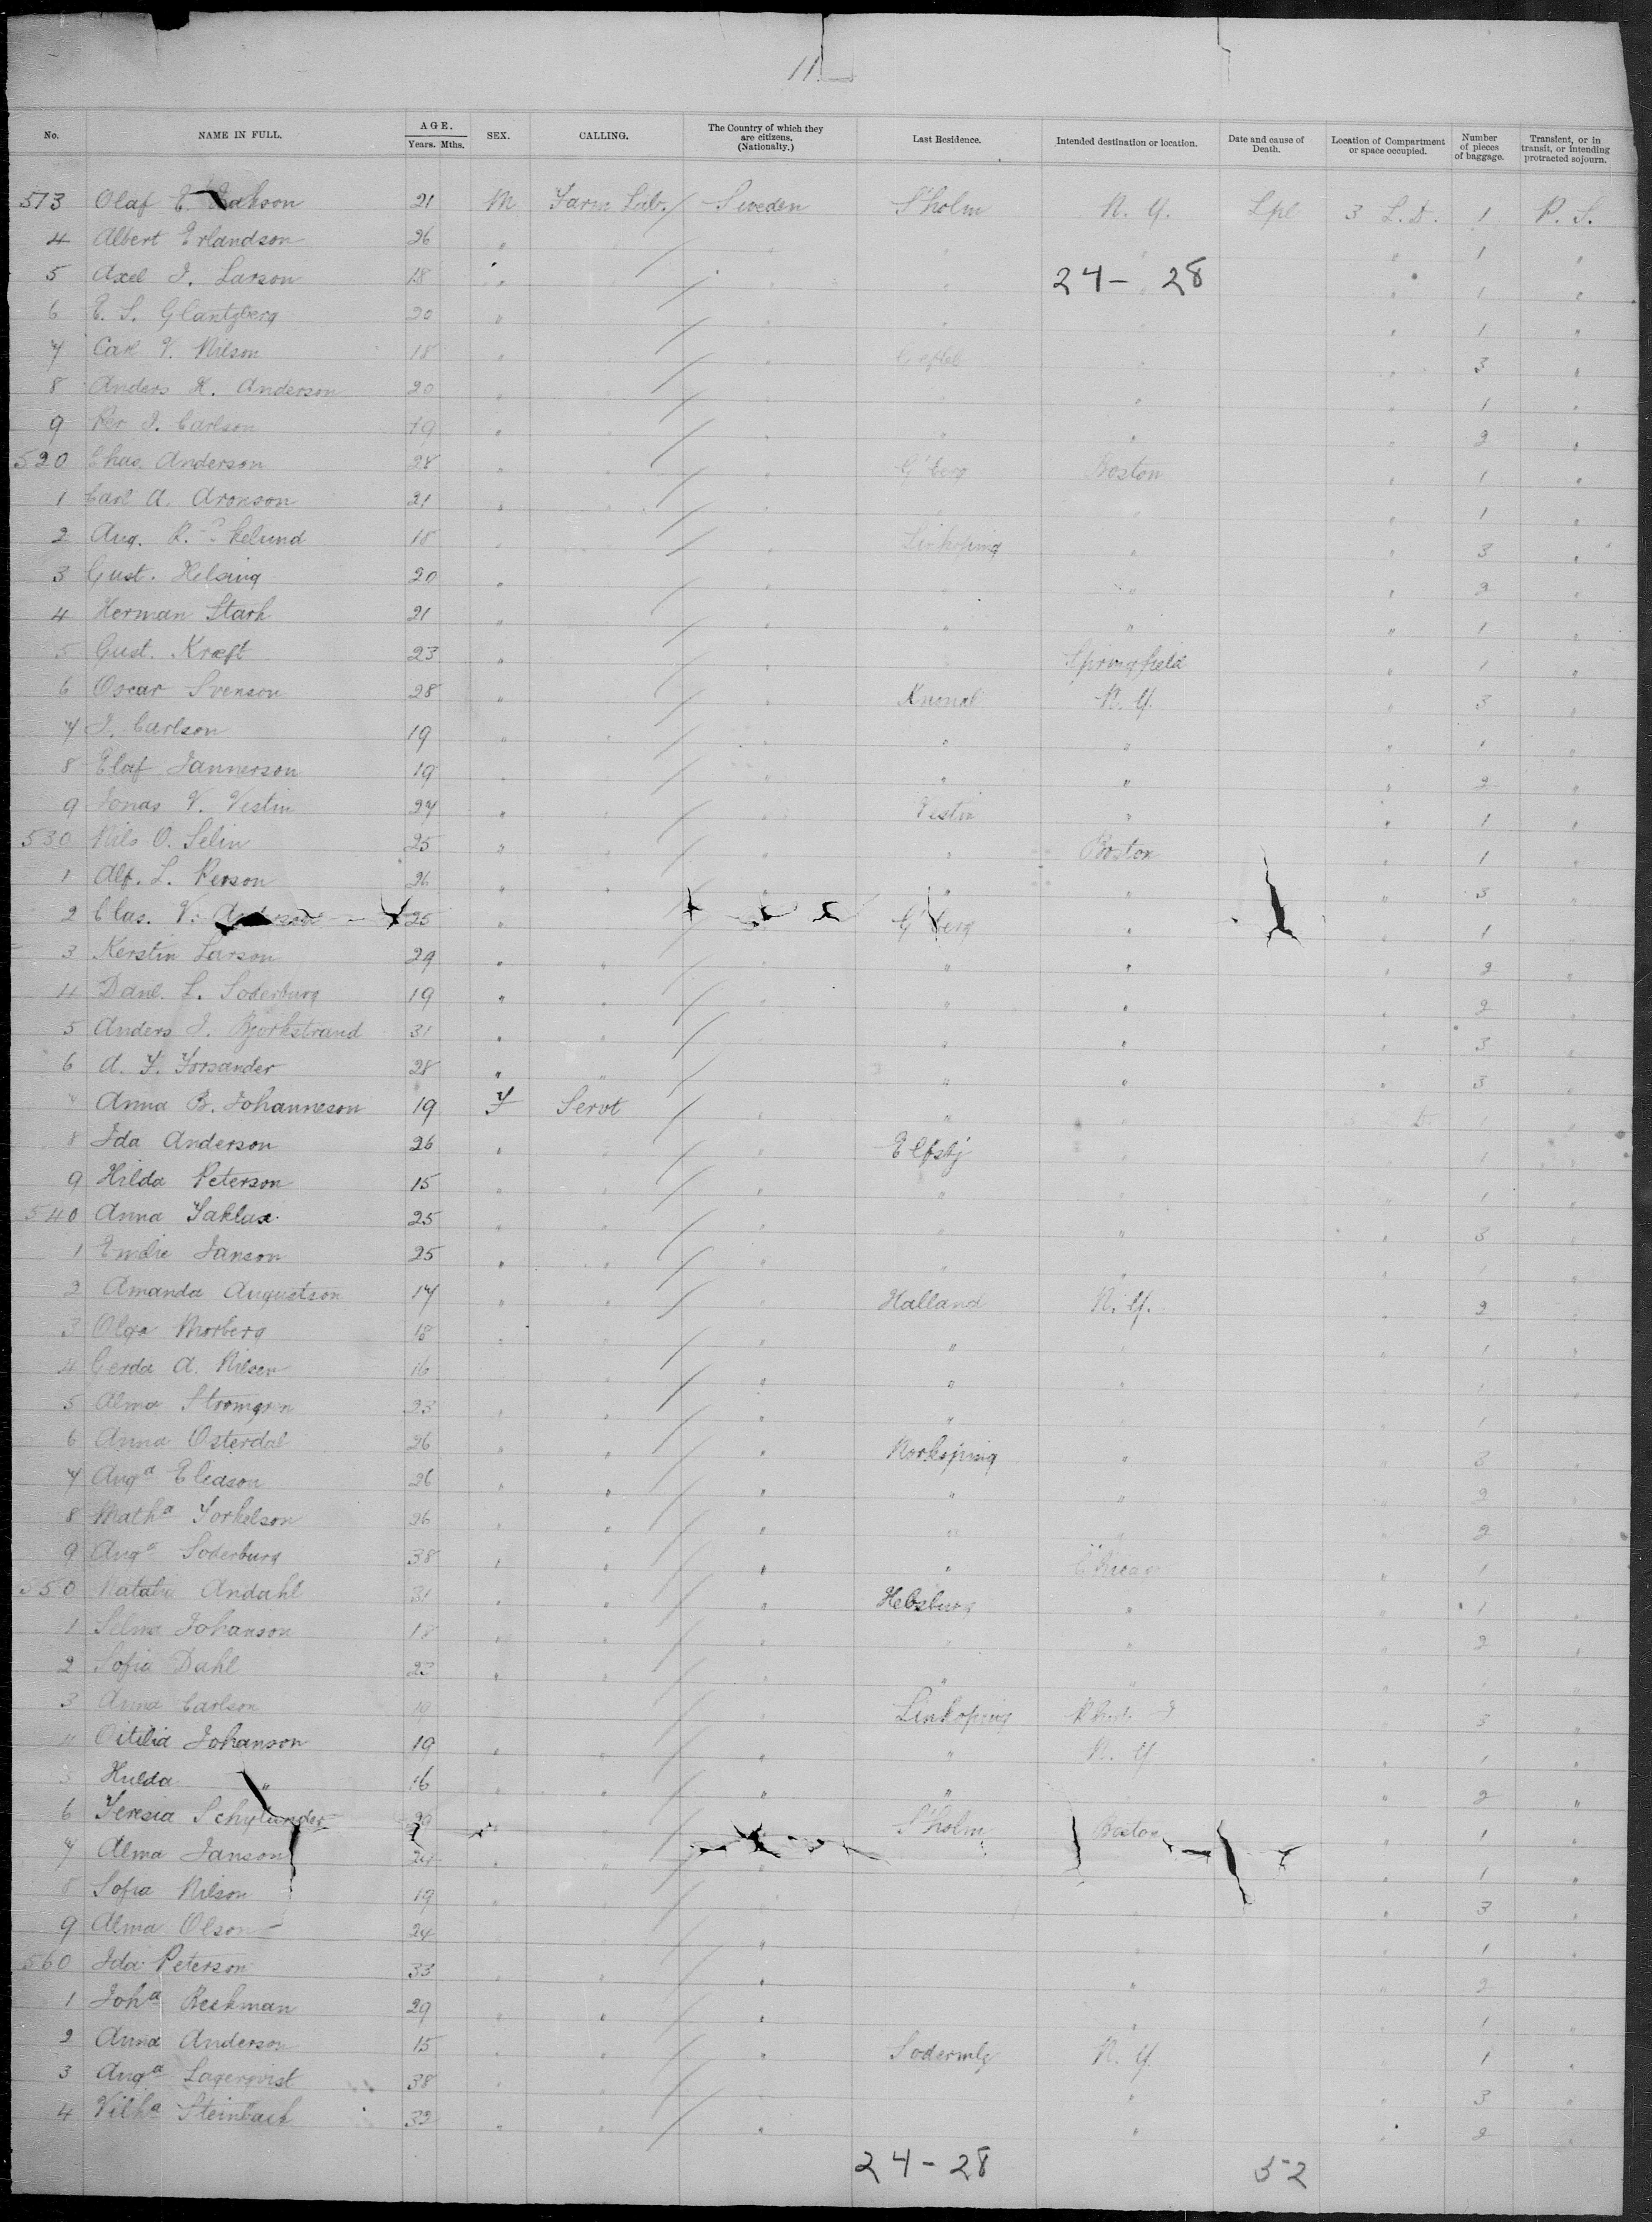 11
No. NAME IN FULL. AGE. Years. Mths. SEX. CALLING. The Country of which they are citizens. (Nationalty.) Last Residence. Intended destination or location. Date and cause of Death. Location of Compartment or space occupied. Number of pieces of baggage. Transient, or in transit, or intending protracted sojourn.
513 Olaf E. 21 M Farm Lab. / Sweden S'holm N. Y. Lpl 3 L. D. 1 P. S.
4 Albert Erlandson 26 " / " " " " 1 "
5 Axel J. Larson 18 " / " " 24 - 28 " 1 "
6 E. S. Glantzberg 20 " / " " " " 1 "
7 Carl V. Nilson 18 " / " " " 3 "
8 Anders H. Anderson 20 " / " " " " 1 "
9 Per J. Carlson 19 " / " " " " 2 "
520 Chas. Anderson 28 " / " G'berg Boston " 1 "
1 Carl A. Aronson 21 " / " " " " 1 "
2 Aug. R. 18 " / " Linkoping " " 3 "
3 Gust. Helsing 20 " / " " " " 2 "
4 Herman Stark 21 " / " " " " 1 "
5 Gust. Kraft 23 " / " Springfield " 1 "
6 Oscar Svenson 28 " / " N. Y. " 3 "
7 J. Carlson 19 " " / " " " " 1 "
8 Elaf Jannerson 19 " / " " " " 2 "
9 Jonas V. Vestin 27 " / " Vestin " " 1 "
530 Nils O. Selin 25 " / " " Boston " 1 "
1 Alf. L. Person 26 " " / " " " " 3 "
2 Clas. V. Anderson 25 " / " G'berg " " 1 "
3 Kerstin Larson 29 " " / " " " " 2 "
4 Danl. L. Soderburg 19 " " / " " " " 2 "
5 Anders J. Bjorkstrand 31 " " / " " " " 3 "
6 A. F. Forsander 28 " " / " " " " 3 "
7 Anna B. Johanneson 19 F Servt / " " " D. 1 "
8 Ida Anderson 26 " " / " Elfsbj " 1 "
9 Hilda Peterson 15 " " / " " " 1 "
540 Anna 25 " " / " " " " 3 "
1 Emilie Janson 25 " " / " " " " 1 "
2 Amanda Augustson 17 " " / " Halland N. Y. " 2 "
3 Olga Morberg 18 " " / " " " " 1 "
4 Gerda A. Nilson 16 " " / " " " 1 "
5 Alma Stromgren 23 " " / " " " 1 "
6 Anna Osterdal 26 " " / " Norkoping " " 3 "
7 Aug<sup>a</sup> Eleason 26 " " / " " " 2 "
8 Math<sup>a</sup> Torkelson 26 " " / " " " 2 "
9 Aug<sup>a</sup> Soderburg 38 " " / " " Chicago " 1 "
550 Natalia Andahl 31 " " / " Helsburg " " 1 "
1 Selma Johanson 18 " " / " " " " 2 "
2 Sofia Dahl 23 " " / " " " 1 "
3 Anna Carlson 19 / Linkoping 3 "
4 Otilia Johanson 19 " " / " " N. Y " 1 "
5 Hulda " 16 " " / " " " " 2 "
6 Teresia Schylander " " / S'holm Boston " 1 "
7 Alma Janson 24 " " / " " 1 "
8 Sofia Nilson 19 " / " " " 3 "
9 Alma Olson 24 / " " " 1 "
560 Ida Peterson 33 " " / " " " 2 "
1 Joh<sup>a</sup> Beckman 29 " " / " " 1 "
2 Anna Anderson 15 " " / " Sodermlg N. Y. 1 "
3 Aug<sup>a</sup> Lagerqvist 38 " " / " " " 3 "
4 Vilh<sup>a</sup> Steinbach 32 " " / " " " 2 "
24 - 28 52